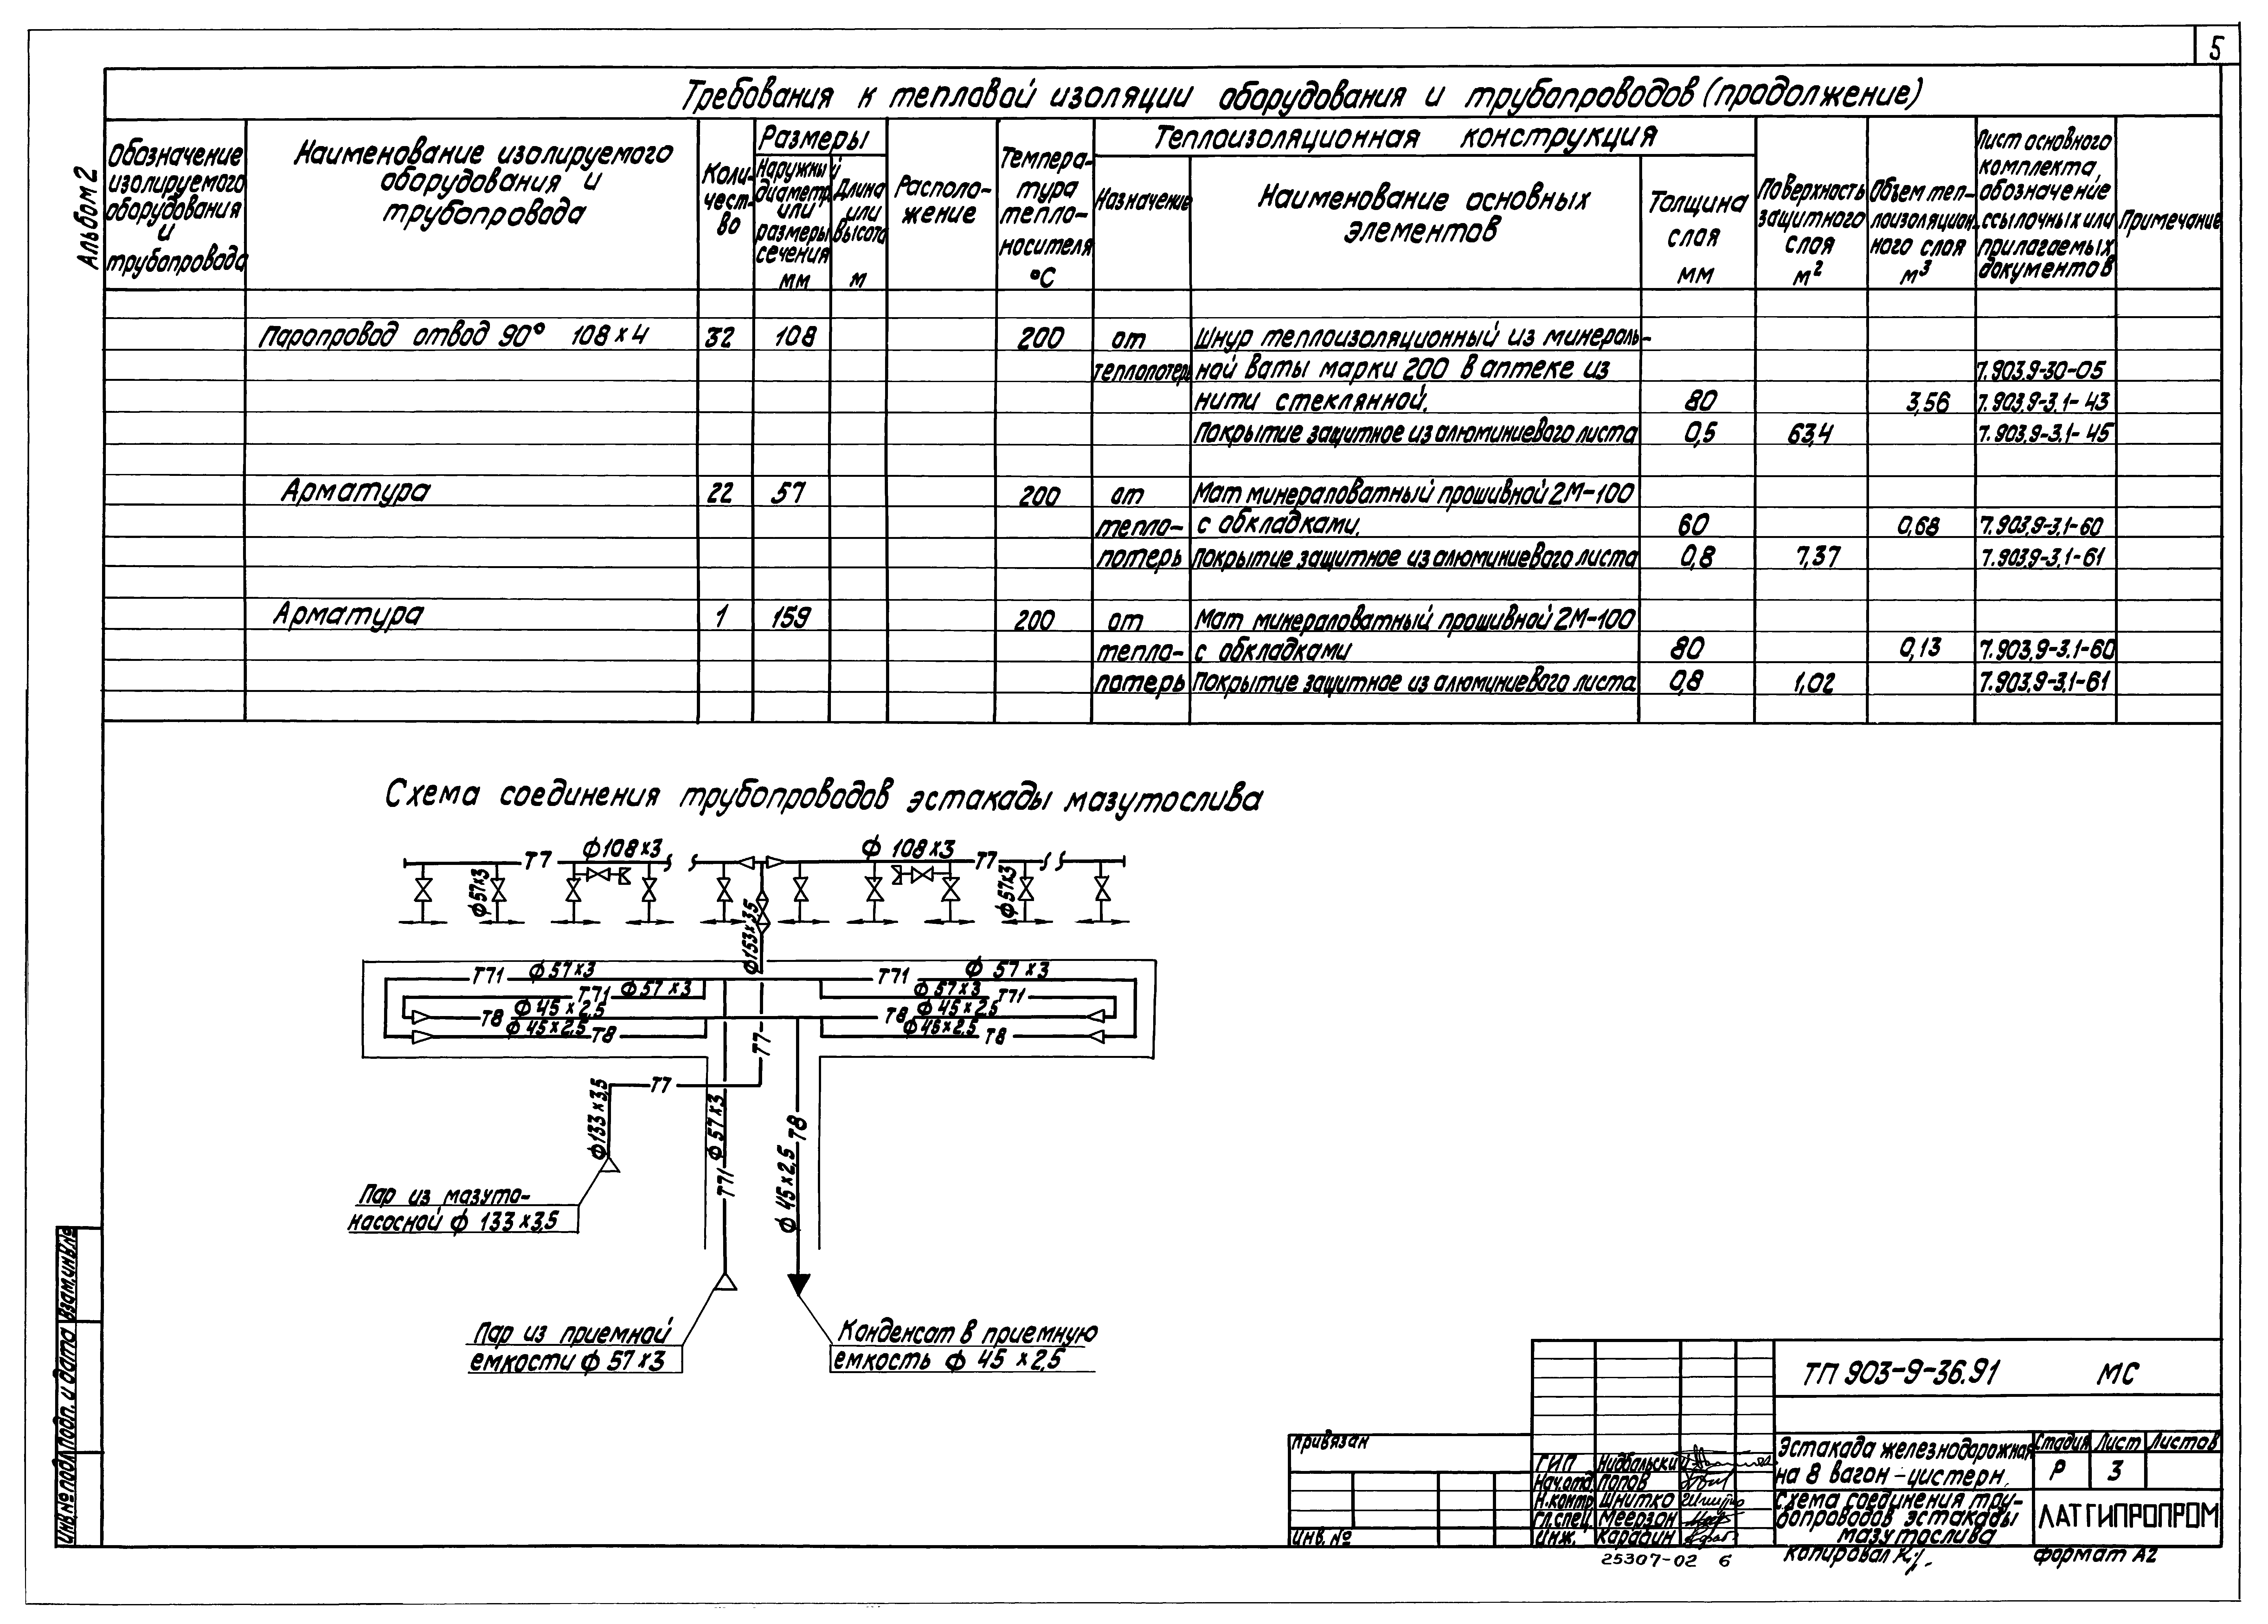 5
Альбом 2
Требования к тепловой изоляции оборудования и трубопроводов (продолжение)
Обозначение изолируемого оборудования и трубопровода
Наименование изолируемого оборудования и трубопровода
Коли-чест-во
Размеры
Наружный диаметр или размеры сечения мм
Длина или высота м
Располо-жение
Темпера-тура тепло-носителя °С
Теплоизоляционная конструкция
Назначение
Наименование основных элементов
Толщина слоя мм
Поверхность защитного слоя м²
Объем теп-лоизоляцион-ного слоя м³
Лист основного комплекта, обозначение ссылочных или прилагаемых документов
Примечание
Паропровод отвод 90° 108×4 32 108 200 от Шнур теплоизоляционный из минераль-
теплопотерь ной ваты марки 200 в аптеке из 7.903.9-30-05
нити стеклянной. 80 3,56 7.903.9-3.1-43
Покрытие защитное из алюминиевого листа 0,5 63,4 7.903.9-3.1-45
Арматура 22 57 200 от Мат минераловатный прошивной 2М-100
тепло- с обкладками. 60 0,68 7.903.9-3.1-60
потерь Покрытие защитное из алюминиевого листа 0,8 7,37 7.903.9-3.1-61
Арматура 1 159 200 от Мат минераловатный прошивной 2М-100
тепло- с обкладками 80 0,13 7.903.9-3.1-60
потерь Покрытие защитное из алюминиевого листа 0,8 1,02 7.903.9-3.1-61
Схема соединения трубопроводов эстакады мазутослива
Т7 ф108×3 ф 108×3 Т7
ф57×3
ф57×3
ф153×3,5
Т71 ф57×3 Т71 ф 57×3
Т71 ф57×3 ф57×3 Т71
Т8 ф45×2,5 Т8 ф45×2,5
ф45×2,5 Т8 ф46×2,5 Т8
Т7
Т7
ф133×3,5
ф57×3
Т71
Т8
ф 45×2,5
Пар из мазуто-
насосной ф 133×3,5
Пар из приемной
емкости ф 57×3
Конденсат в приемную
емкость ф 45×2,5
Взам.инв.№
Подп. и дата
Инв.№ подл.
Привязан
Инв. №
ГИП Нидбальский
Нач.отд. Попов
Н.контр. Шнитко
Гл.спец. Меерзон
Инж. Карабин
ТП 903-9-36.91 МС
Эстакада железнодорожная
на 8 вагон-цистерн.
Стадия Лист Листов
Р 3
Схема соединения тру-
бопроводов эстакады
мазутослива
ЛАТГИПРОПРОМ
25307-02 6
копировал
формат А2